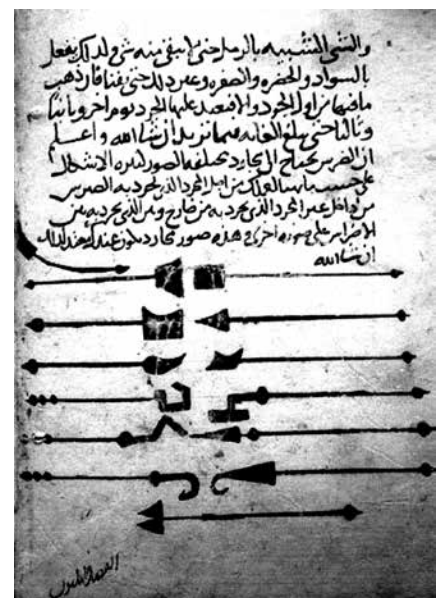 والشي الشبيه بالرمل حتى لا يبقى منه شي وكذلك يفعل
بالسواد والخضره والصفره وغير ذلك حتى ينقا فان ذهب
ما فيها من اول الجرد والا فتعيد عليها الجرد يوم اخر وثانيا
وثالثا حتى يبلغ الغايه فيما تريد ان شا الله واعلم
ان الضرس يحتاج الى مجارد مختلفه الصور كثيره الاشكال
على حسب ما يتهيا لعملك من اجل المجرد الذي يجرد به الضرس
من داخل غير المجرد الذي يجرد به من خارج الذي يجرد به بين
الاضراس على صوره اخرى وهذه صور مجارد تكون عندك كذلك
ان شا الله